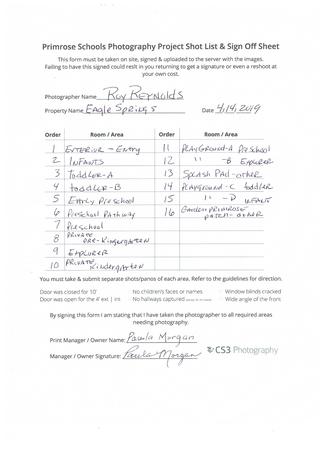 Primrose Schools Photography Project Shot List & Sign Off Sheet
This form must be taken on site, signed & uploaded to the server with the images.
Failing to have this signed could reslt in you returning to get a signature or even a reshoot at
your own cost.
Photographer Name Roy Reynolds
Property Name Eagle Springs Date 4/14/2019
Order Room / Area Order Room / Area
1 Exterior - Entry 11 Playground-A Preschool
2 Infants 12 " -B Explorer
3 Toddler-A 13 Splash Pad-other
4 toddler-B 14 Playground-C toddler
5 Early Preschool 15 " -D infants
6 Preschool Pathway 16 Garden Primrose patch-other
7 Preschool
8 Private Pre-Kindergarten
9 Explorer
10 Private Kindergarten
You must take & submit separate shots/panos of each area. Refer to the guidelines for direction.
Door was closed for 10' No children's faces or names Window blinds cracked
Door was open for the 4' ext | int No hallways captured Wide angle of the front
By signing this form I am stating that I have taken the photographer to all required areas
needing photography.
Print Manager / Owner Name: Paula Morgan
Manager / Owner Signature: Paula Morgan
CS3 Photography